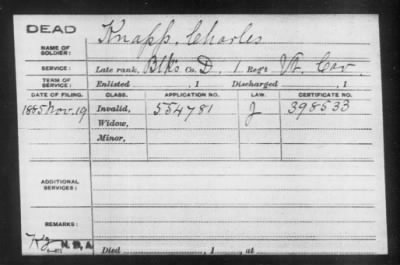 DEAD
Knapp, Charles
NAME OF SOLDIER:
SERVICE: Late rank, Blk's Co. D, 1 Reg't Vt. Cav.
TERM OF SERVICE: Enlisted , 1 Discharged , 1
DATE OF FILING. CLASS. APPLICATION NO. LAW. CERTIFICATE NO.
1885 Nov. 19 Invalid, 554781 J 398533
Widow,
Minor,
ADDITIONAL SERVICES:
REMARKS:
N.D.A. Died , 1 , at